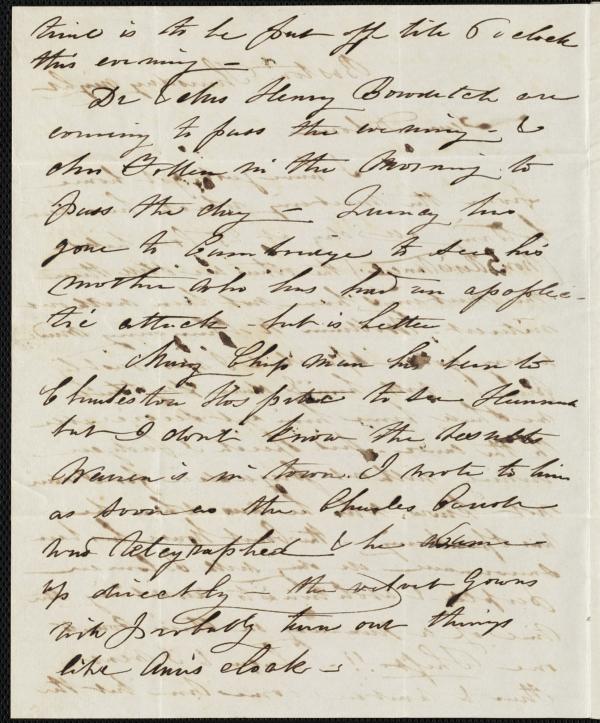 time is to be put off till 6 o clock
this evening –
Dr & Mrs Henry Bowditch are
coming to pass the evening – &
Mrs Follen in the Morning to
pass the day – Quincy has
gone to Cambridge to see his
mother who has had an apoplec-
tic attack – but is better
Mary Chapman has been to
Charlestown Hospital to see Hannah
but I dont know the result
Warren is in town. I wrote to him
as soon as the Charles Carroll
was telegraphed & he came
up directly – the velvet Gowns
will probably turn out things
like Ann's cloak –